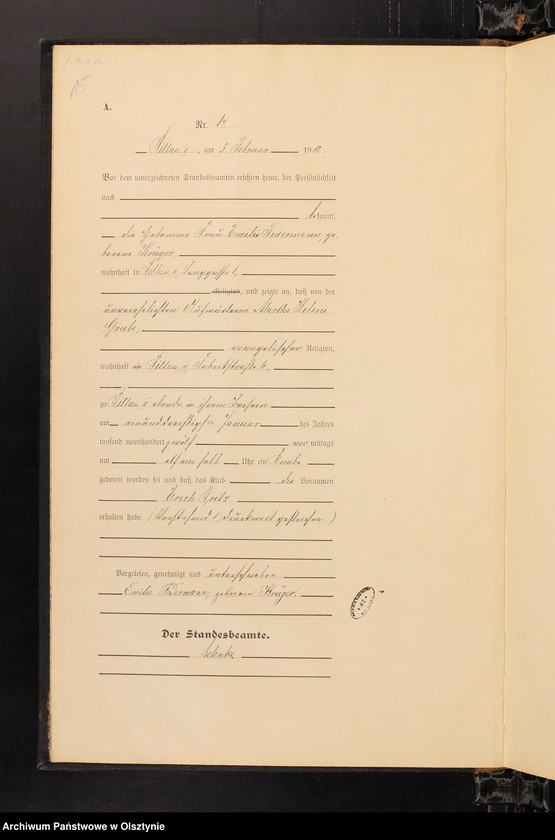 15
A.
Nr. 12
Pillau I, am 3. Februar 1912.
Vor dem unterzeichneten Standesbeamten erschien heute, der Persönlichkeit
nach
bekannt,
die Hebamme Frau Emilie Federmann, ge-
borene Krüger,
wohnhaft in Pillau I, Langgasse
Religion, und zeigte an, daß von der
unverehelichten Aufwärterin Martha Helene
evangelischer Religion,
wohnhaft in Pillau I,
zu Pillau I ebenda in ihrem Beisein
am einunddreißigsten Januar des Jahres
tausend neunhundert zwölf vor mittags
um elf ein halb Uhr ein Knabe
geboren worden sei und daß das Kind die Vornamen
Erich Fritz
erhalten habe. (Vorstehend 1 Druckwort gestrichen.)
Vorgelesen, genehmigt und unterschrieben
Emilie Federmann, geborene Krüger.
Der Standesbeamte.
Archiwum Państwowe w Olsztynie